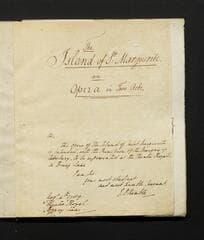 The
Island of St. Marguerite.
an
Opera in Two Acts.
Sir,
the opera of The Island of Saint Marguerite
is intended, with the Permission of the
to be represented at the Theatre Royal
in Drury Lane
I am Sir
your most obedient
and most humble Servant
J P Kemble
Theatre Royal
Drury Lane